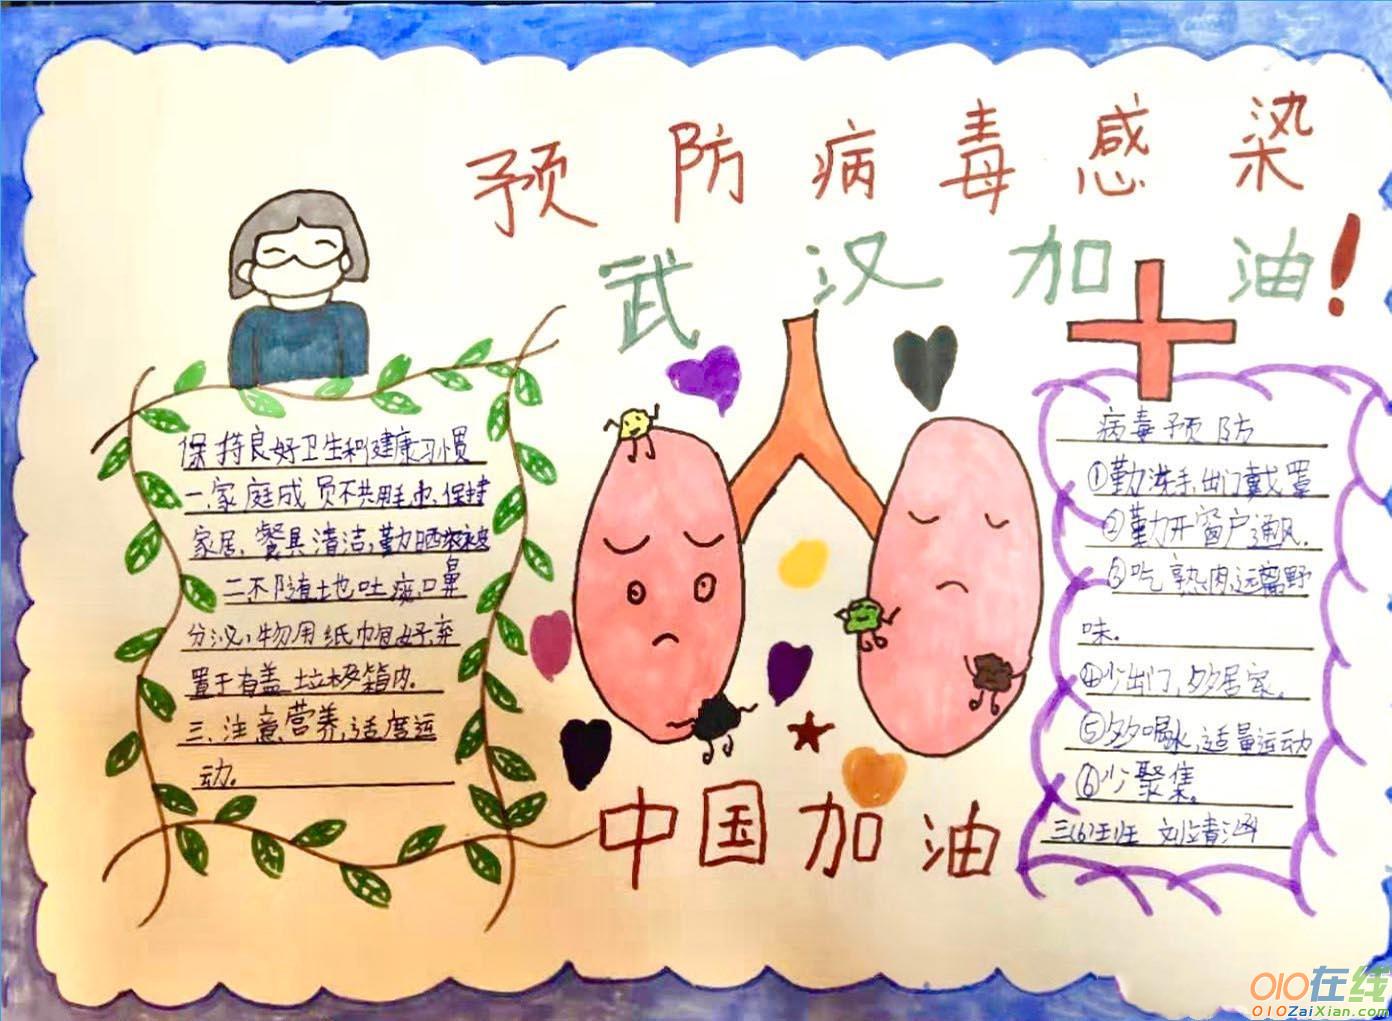 预防病毒感染
武汉加油!
保持良好卫生和健康习惯
一.家庭成员不共用毛巾,保持
家居、餐具清洁,勤晒衣被
二.不随地吐痰,口鼻
分泌物用纸巾包好弃
置于有盖垃圾箱内.
三.注意营养,适度运
动.
病毒预防
①勤洗手,出门戴罩
②勤开窗户通风.
③吃熟肉,远离野
味.
④少出门,多居家.
⑤多喝水,适量运动
⑥少聚集.
三(6)班 刘清涵
中国加油
010在线
010ZaiXian.com